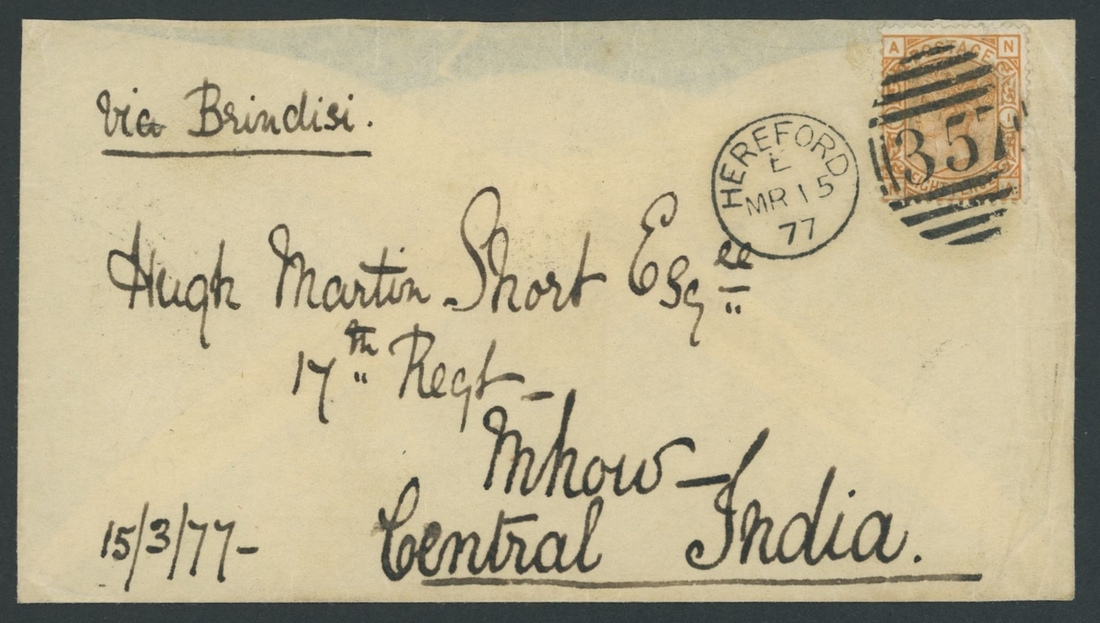 via Brindisi.
A N
POSTAGE
EIGHT PENCE
357
HEREFORD
E
MR 15
77
Hugh Martin Short Esqre
17th Regt -
Mhow -
Central India.
15/3/77 -